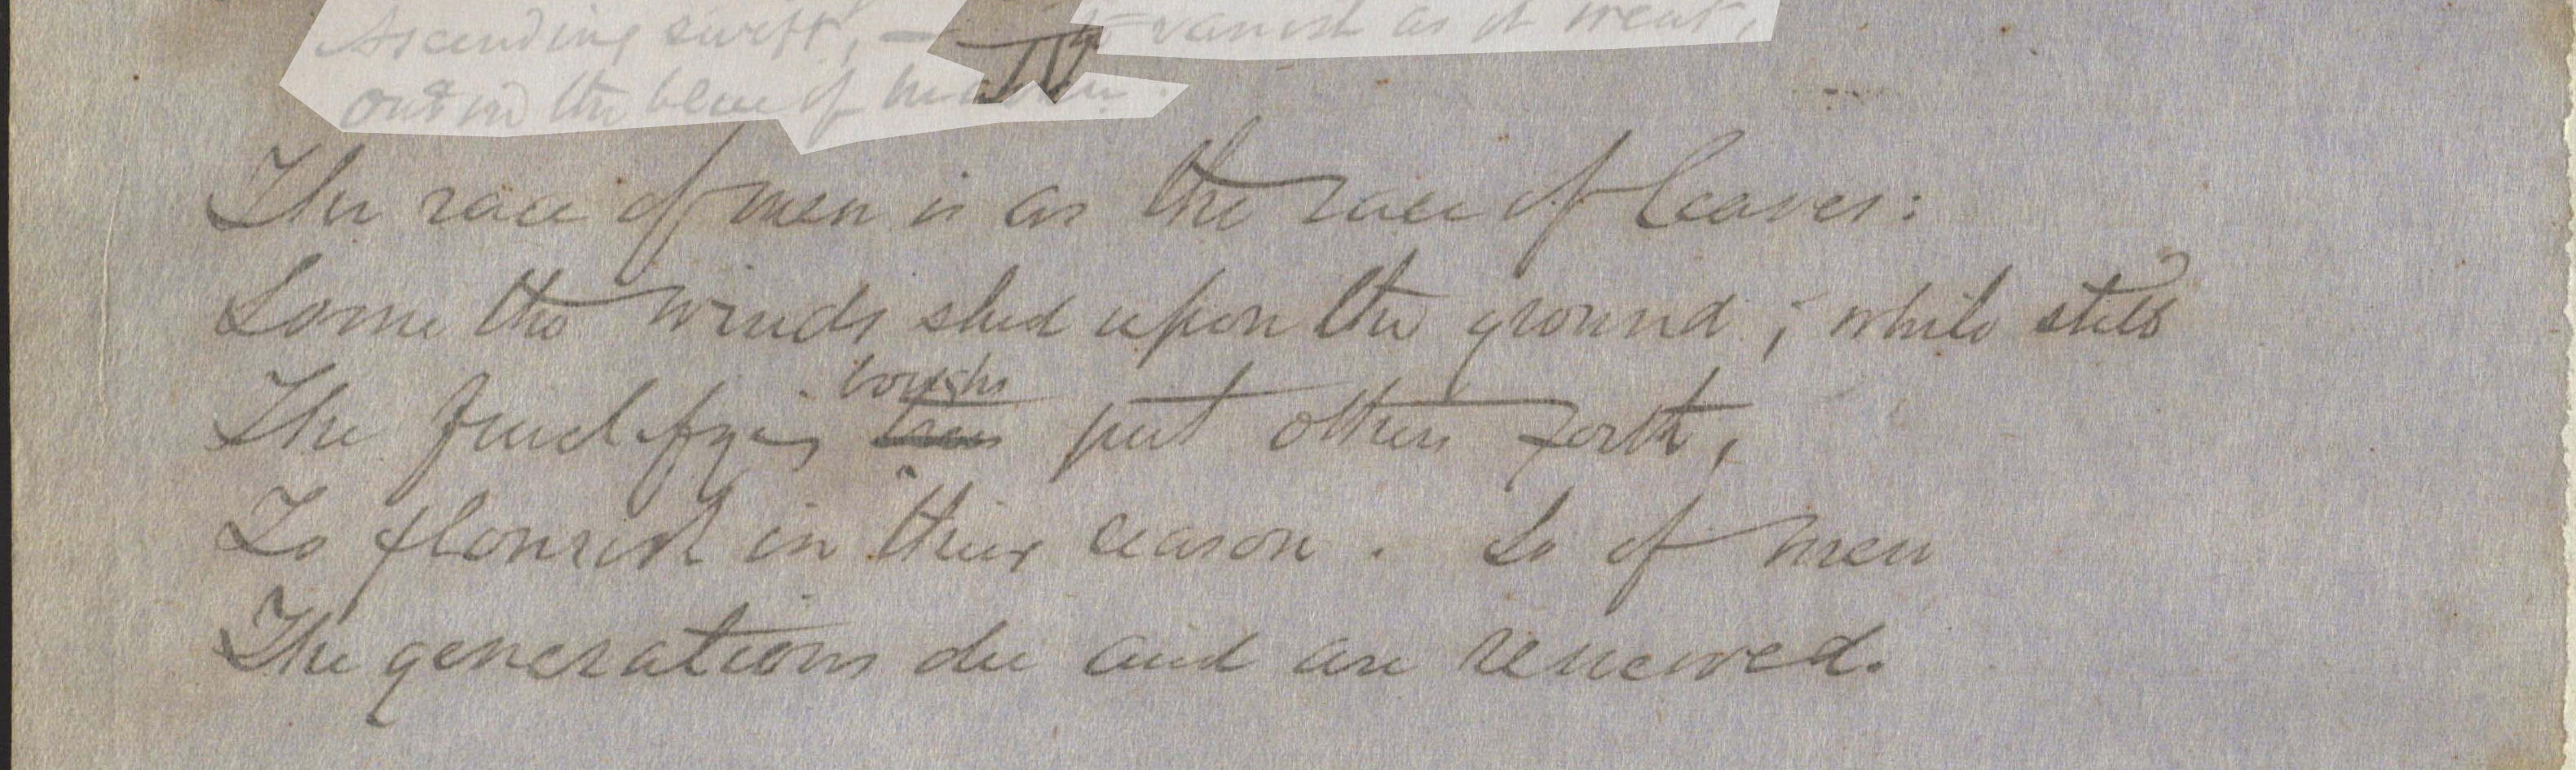 Ascending swift, — to vanish as it went,
out in the blue of heaven.
IV
The race of men is as the race of leaves:
Some the winds shed upon the ground; while still
boughs
The fructifying trees put others forth,
To flourish in their season. So of men
The generations die and are renewed.